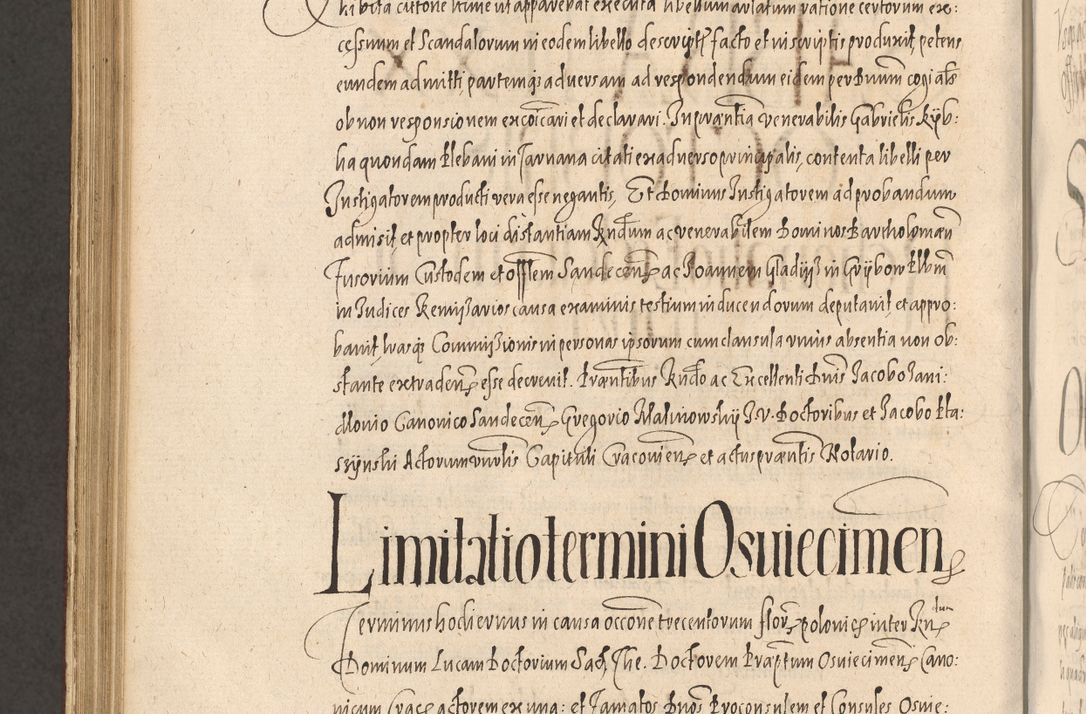 cessuum et Scandalorum in eodem libello descript: facto et in scriptis produxit, petens
eundem admitti, partemq; adversam ad respondendum eidem per Dnum cogi als
ob non responsionem excoicari et declarari. In pntia venerabilis Gabrielis Ryb:
ha quondam Plebani in Tarnana citati ex adverso principalis, contenta libelli per
Instigatorem producti vera esse negantis, Et Dominus Instigatorem ad probandum
admisit, et propter loci distantiam Rndum ac venerabilem Dominos Bartholomæum
Fusorium Custodem et Offlem Sandecen ac Joannem Gladijs in Grijbow Plbm
in Judices Remissarios causa examinis testium inducendorum deputavit, et appro:
bavit, hrasq Commissionis in personas ipsorum cum clausula unius absentia non ob:
stante extraden esse decrevit. Præntibus Rndo ac Excellenti Dnis Jacobo Jani:
dlovio Canonico Sandecen Gregorio Malinowskij J. V. Doctoribus et Jacobo Pta:
szijnski Actorum vnrlis Capituli Cracovien et actus præntis Notario.
Limitatio termini Osuiecimen
Terminus hodiernus in causa occone trecentorum flor polonic inter Rndum
Dominum Lucam Doctorium Sac The. Doctorem Præptum Osuiecimen Cano:
nicum Crac actorem ex una: et Famatos Dnos Proconsulem et Consules Osuie: